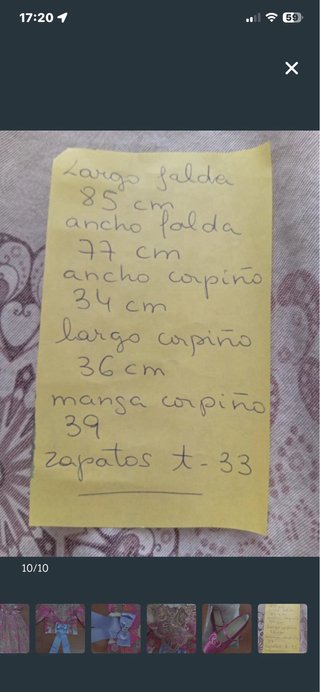 17:20
59
Largo falda
85 cm
ancho falda
77 cm
ancho corpiño
34 cm
largo corpiño
36 cm
manga corpiño
39
zapatos t-33
10/10